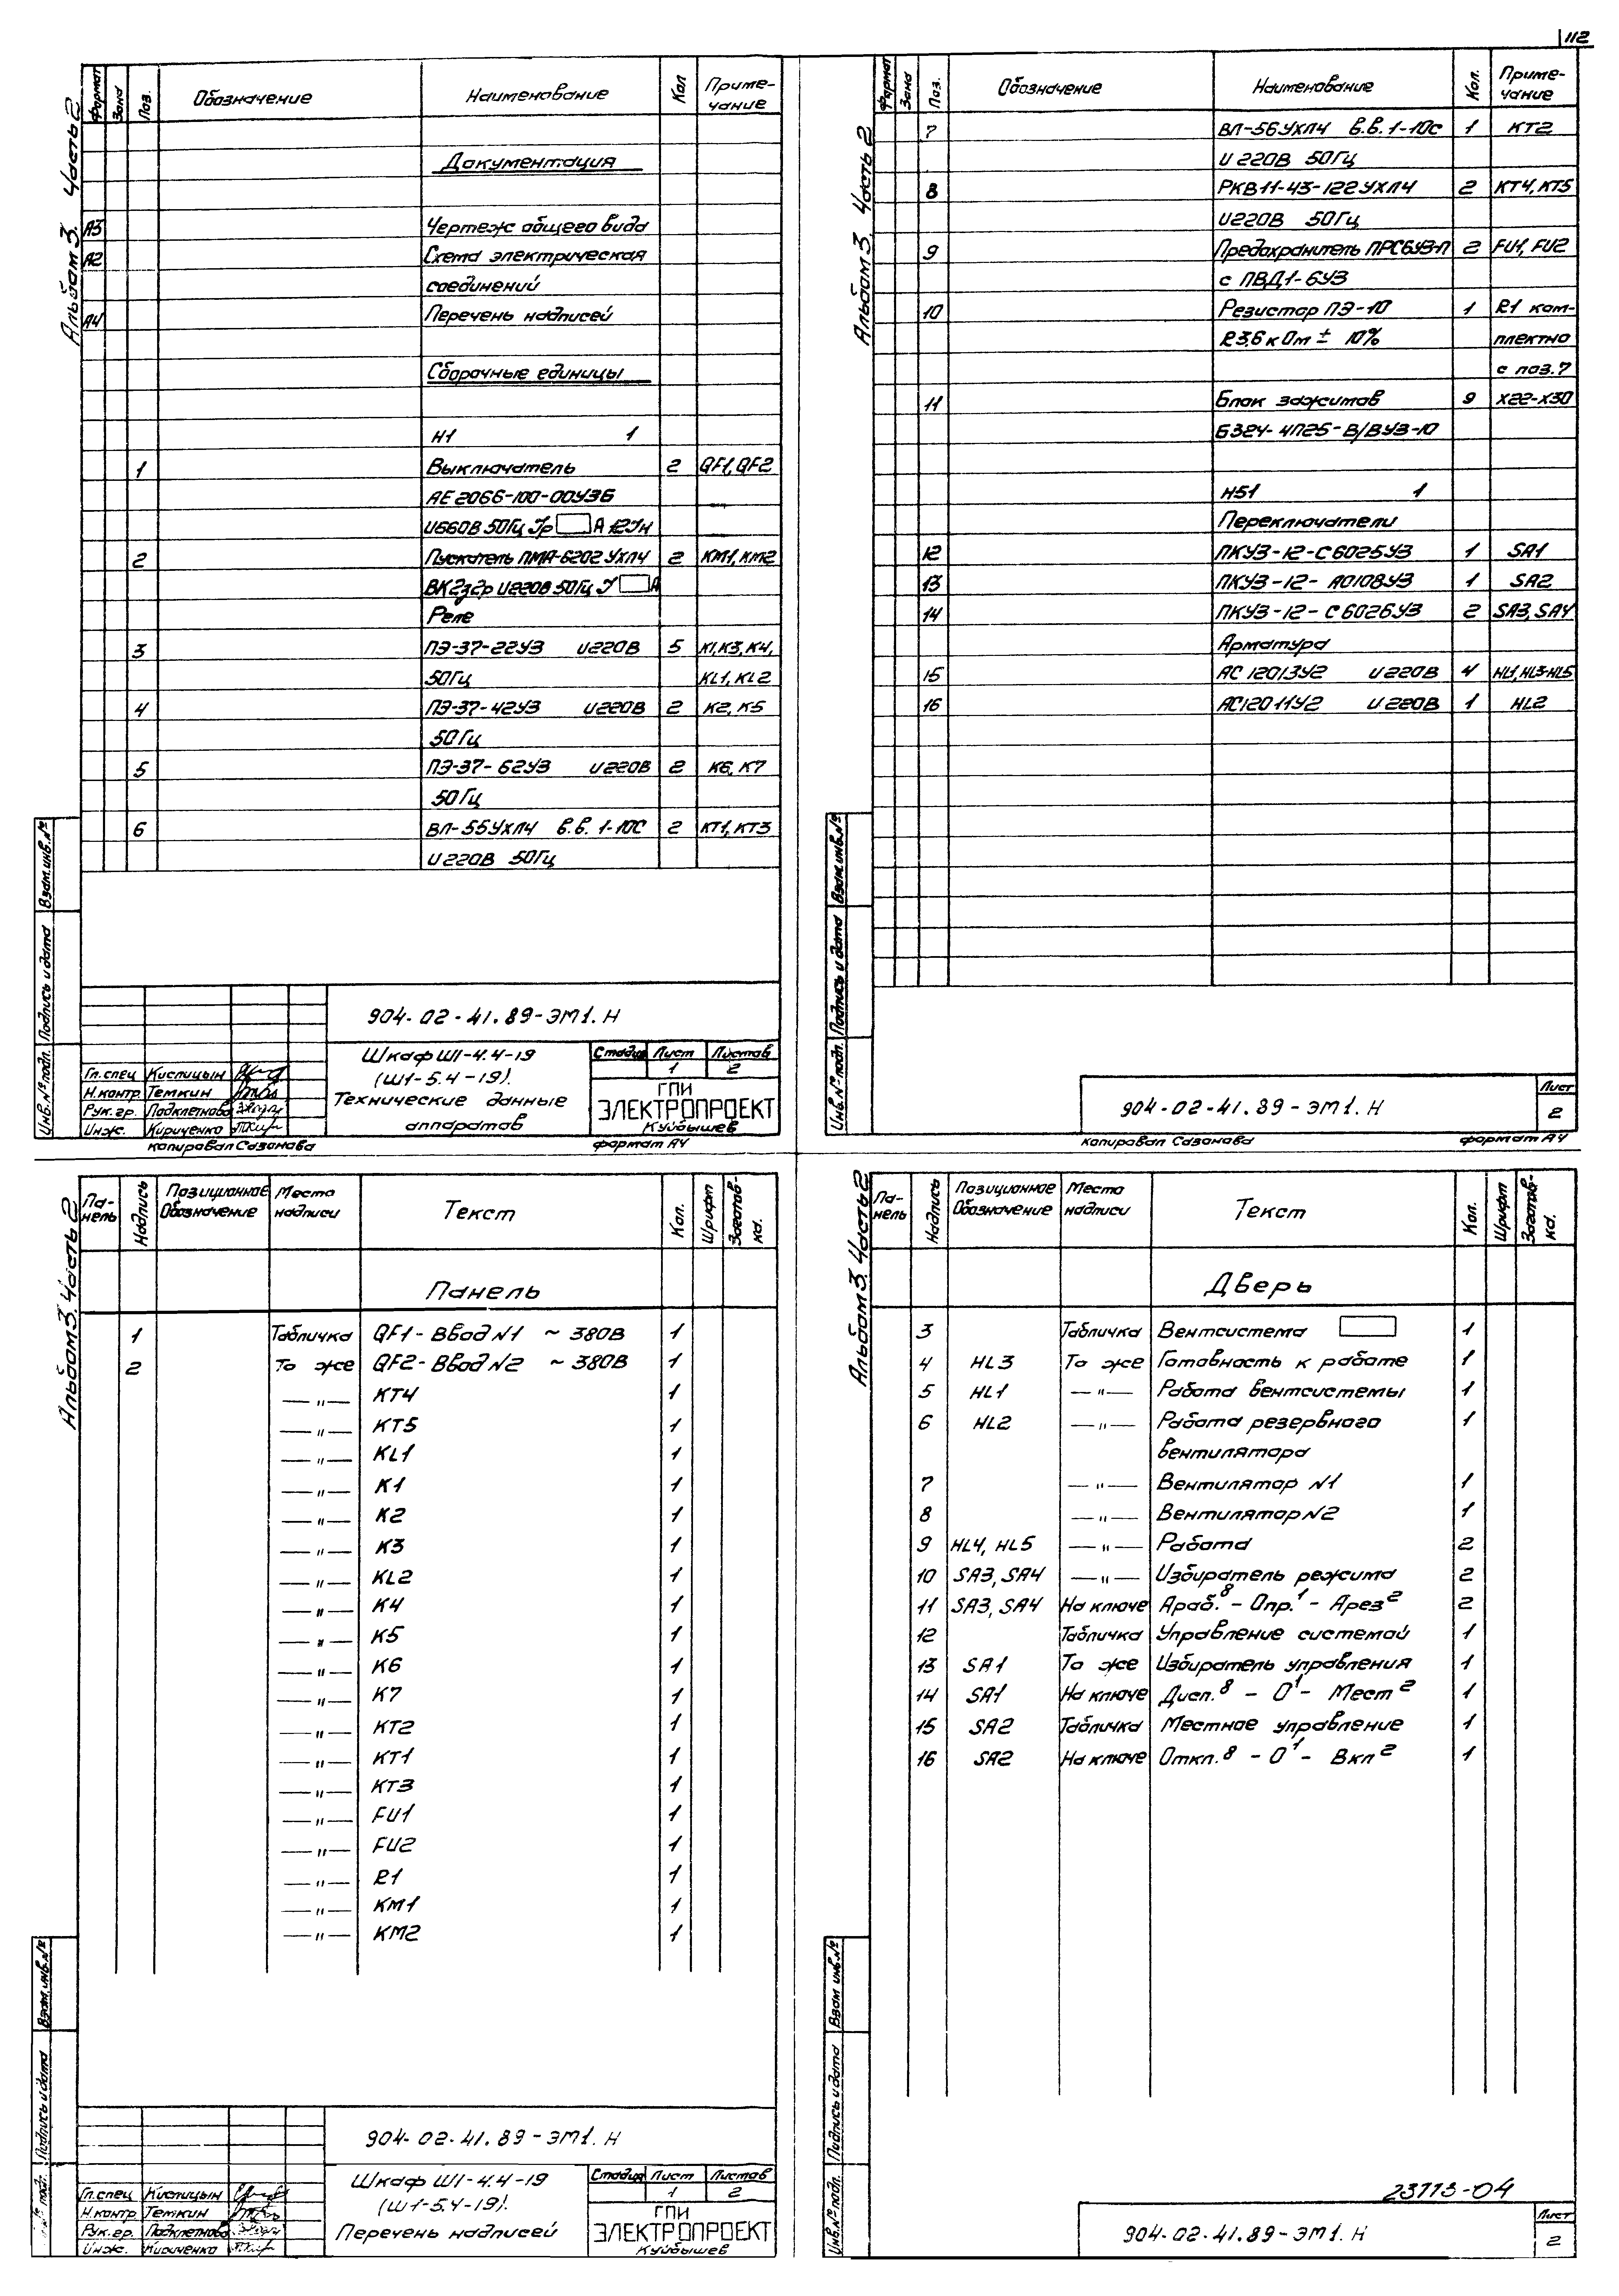 112
Альбом 3. Часть 2
Формат Зона Поз. Обозначение Наименование Кол Приме-
чание
Документация
А3 Чертеж общего вида
А2 Схема электрическая
соединений
А4 Перечень надписей
Сборочные единицы
Н1 1
1 Выключатель 2 QF1, QF2
АЕ 2066-100-00У3Б
U660В 50Гц Iр А 12Iн
2 Пускатель ПМА-6202 УХЛ4 2 КМ1, КМ2
ВК2з2р U220В 50Гц I А
Реле
3 ПЭ-37-22У3 U220В 5 К1, К3, К4,
50Гц KL1, KL2
4 ПЭ-37-42У3 U220В 2 К2, К5
50Гц
5 ПЭ-37-62У3 U220В 2 К6, К7
50Гц
6 ВЛ-55УХЛ4 в.в. 1-10С 2 КТ1, КТ3
U220В 50Гц
Взам. инв. №
Подпись и дата
Инв. № подл.
904-02-41.89-ЭМ1.Н
Шкаф Ш1-4.4-19
(Ш1-5.4-19).
Технические данные
аппаратов
Стадия Лист Листов
1 2
ГПИ
ЭЛЕКТРОПРОЕКТ
Куйбышев
Гл. спец Кислицын
Н.контр. Темкин
Рук. гр. Подклетнова
Инж. Кириченко
копировал Сазонова формат А4
Альбом 3. Часть 2
Формат Зона Поз. Обозначение Наименование Кол. Приме-
чание
7 ВЛ-56УХЛ4 в.в. 1-10С 1 КТ2
U220В 50Гц
8 РКВ11-43-122УХЛ4 2 КТ4, КТ5
U220В 50Гц
9 Предохранитель ПРС6У3-П 2 FU1, FU2
с ПВД1-6У3
10 Резистор ПЭ-10 1 R1 ком-
R3,6 кОм ± 10% плектно
с поз.7
11 Блок зажимов 9 Х22-Х30
Б324-4П25-В/ВУ3-10
Н51 1
Переключатели
12 ПКУ3-12-С6025У3 1 SA1
13 ПКУ3-12-А0108У3 1 SA2
14 ПКУ3-12-С6026У3 2 SA3, SA4
Арматура
15 АС12013У2 U220В 4 HL1, HL3-HL5
16 АС12011У2 U220В 1 HL2
Взам. инв. №
Подпись и дата
Инв. № подл.
904-02-41.89-ЭМ1.Н
Лист
2
копировал Сазонова формат А4
Альбом 3. Часть 2
Па-
нель Надпись Позиционное
Обозначение Место
надписи Текст Кол. Шрифт Заготов-
ка.
Панель
1 Табличка QF1-Ввод N1 ~ 380В 1
2 То же QF2-Ввод N2 ~ 380В 1
—"— КТ4 1
—"— КТ5 1
—"— KL1 1
—"— К1 1
—"— К2 1
—"— К3 1
—"— KL2 1
—"— К4 1
—"— К5 1
—"— К6 1
—"— К7 1
—"— КТ2 1
—"— КТ1 1
—"— КТ3 1
—"— FU1 1
—"— FU2 1
—"— R1 1
—"— КМ1 1
—"— КМ2 1
Взам. инв. №
Подпись и дата
№ подл.
904-02-41.89-ЭМ1.Н
Шкаф Ш1-4.4-19
(Ш1-5.4-19).
Перечень надписей
Стадия Лист Листов
1 2
ГПИ
ЭЛЕКТРОПРОЕКТ
Куйбышев
Гл. спец Кислицын
Н.контр Темкин
Рук. гр. Подклетнова
Инж. Кириченко
Альбом 3. Часть 2
Па-
нель Надпись Позиционное
Обозначение Место
надписи Текст Кол. Шрифт Заготов-
ка.
Дверь
3 Табличка Вентсистема 1
4 HL3 То же Готовность к работе 1
5 HL1 —"— Работа вентсистемы 1
6 HL2 —"— Работа резервного 1
вентилятора
7 —"— Вентилятор N1 1
8 —"— Вентилятор N2 1
9 HL4, HL5 —"— Работа 2
10 SA3, SA4 —"— Избиратель режима 2
11 SA3, SA4 На ключе Араб.⁸ - Опр.¹ - Арез² 2
12 Табличка Управление системой 1
13 SA1 То же Избиратель управления 1
14 SA1 На ключе Дисп.⁸ - О¹ - Мест² 1
15 SA2 Табличка Местное управление 1
16 SA2 На ключе Откл.⁸ - О¹ - Вкл² 1
Взам инв. №
Подпись и дата
Инв. № подл.
23113-04
904-02-41.89-ЭМ1.Н
Лист
2